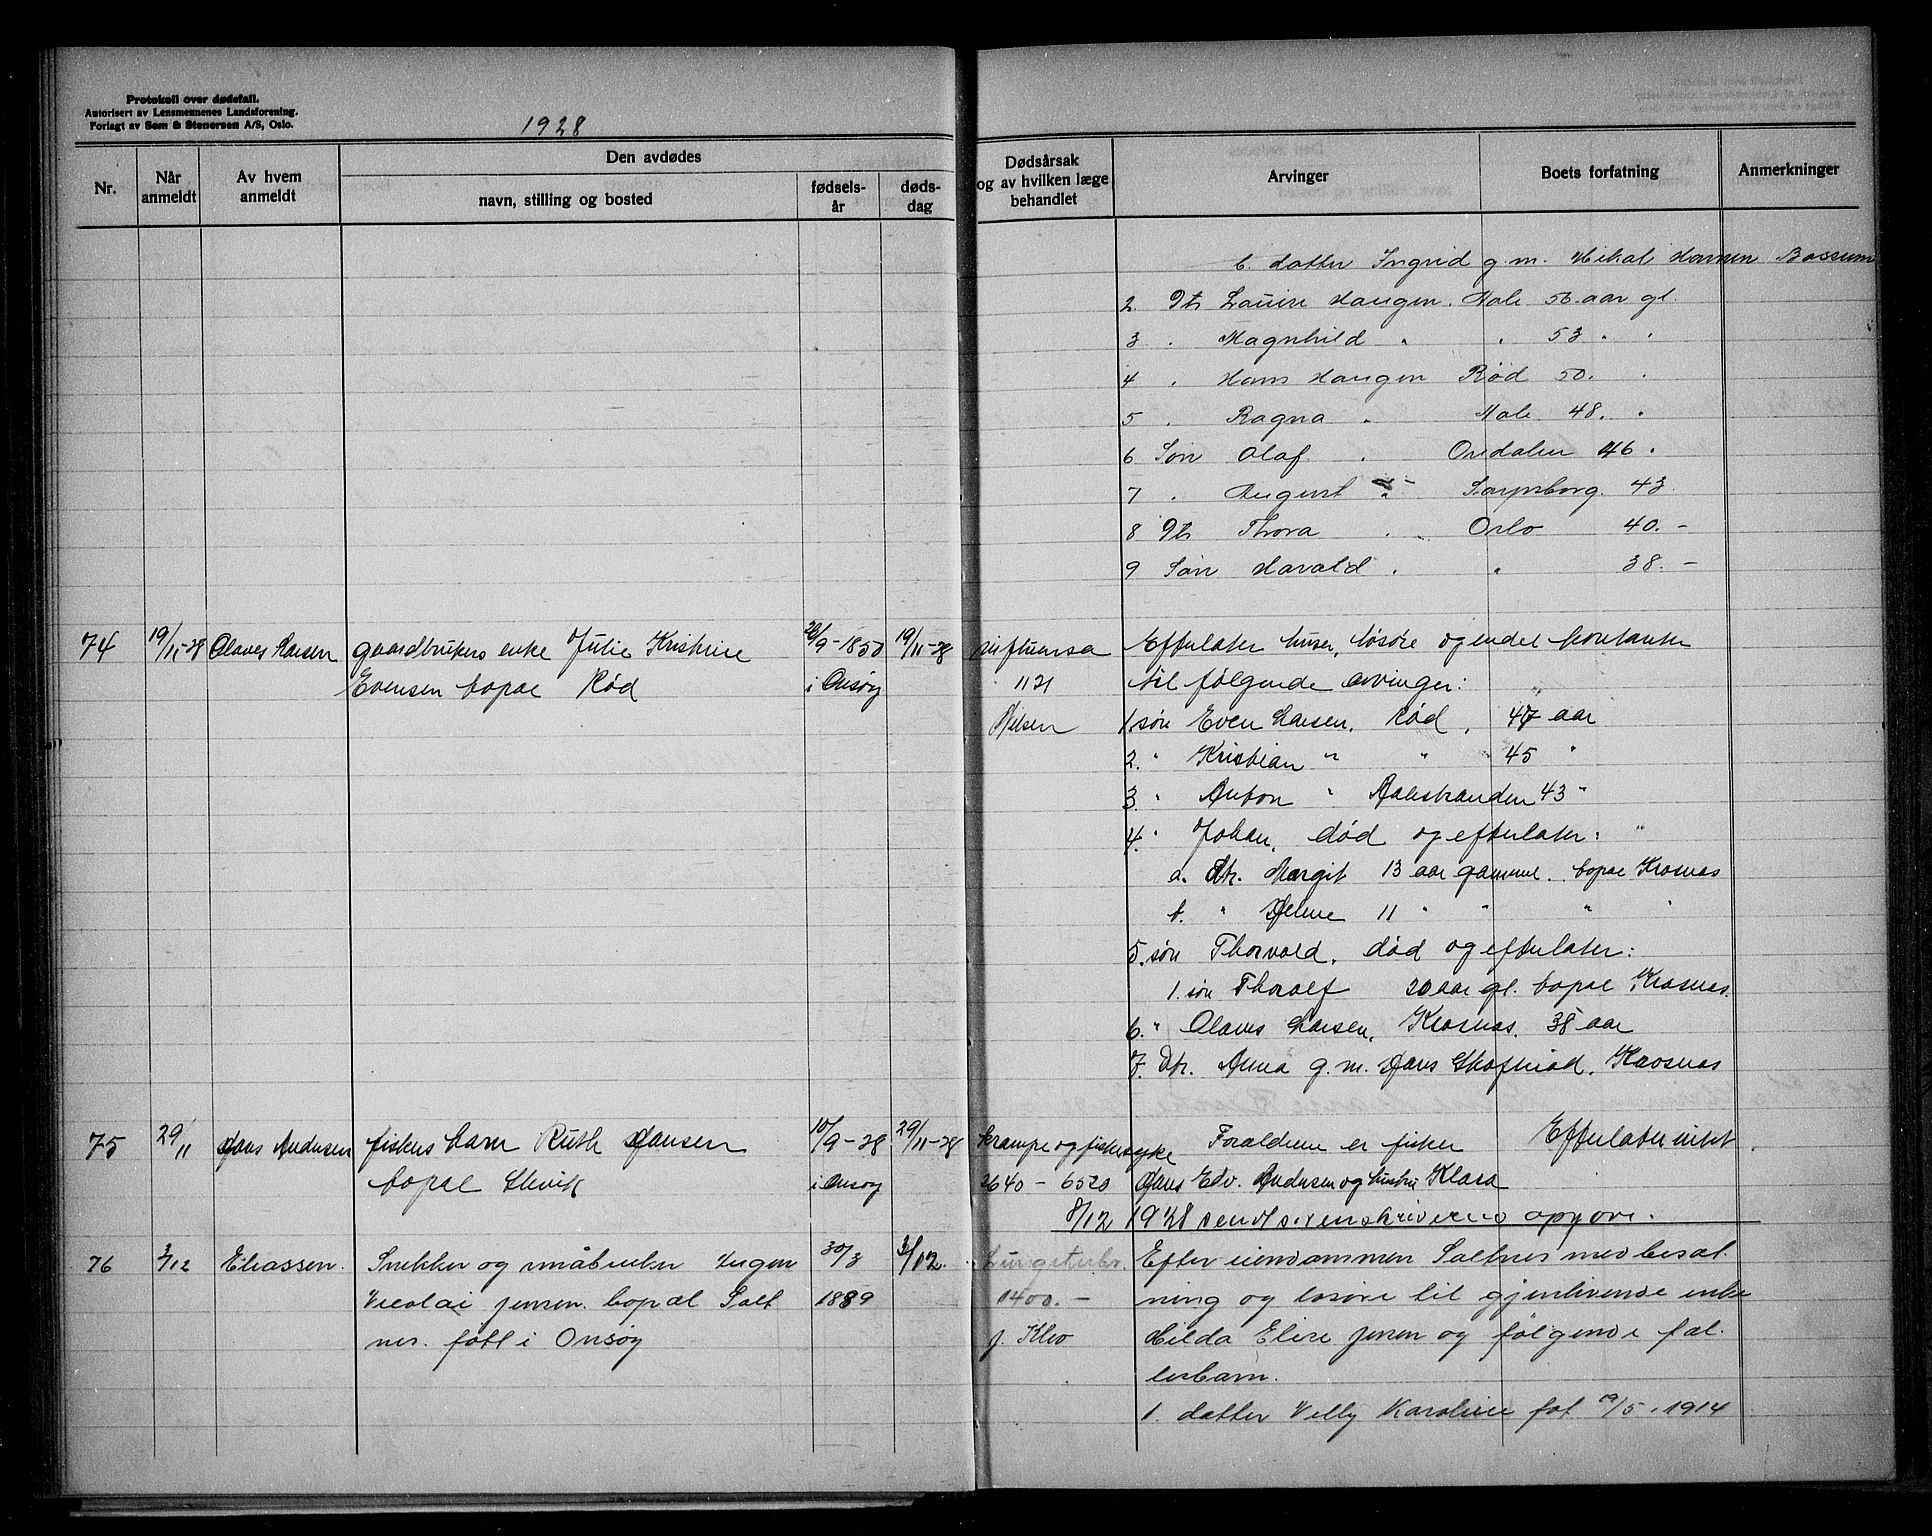 Protokoll over dødsfall.
Autorisert av Lensmennenes Landsforening.
Forlagt av Sem & Stenersen A/S, Oslo.
1928
Nr.
Når anmeldt
Av hvem anmeldt
Den avdødes
navn, stilling og bosted
fødsels-år
døds-dag
Dødsårsak og av hvilken læge behandlet
Arvinger
Boets forfatning
Anmerkninger
b. datter Ingrid g.m. Mikal Hansen Bossum
2. Dtr Louise Haugen. Aale 56 aar gl.
3 " Magnhild " " 53 " "
4 " Hans Haugen Rød 50. "
5 " Ragna " Aale 48. "
6 Søn Olaf " Oredalen 46 "
7 " August " Sarpsborg. 43
8 Dtr Thora " Oslo 40. -
9 Søn Harald " " 38. -
74 19/11-28 Olaves Larsen gaardbrukers enke Julie Kristine 19/11-28 Efterlater huser, løsøre og endel kontanter
Evensen bopæl Rød i Onsøy 1121 til følgende arvinger:
Nilsen 1. søn Even Larsen, Rød, 47 aar
2. " Kristian " " 45 "
3. " Anton " Aalestranden 43 "
4. " Johan, død og efterlater:
a. dtr. Margit 13 aar gammel. bopæl Krosnæs
b. " Helene 11 " " " "
5. søn Thorvald, død og efterlater:
1. søn Thoralf 20 aar gl. bopæl Krosnæs.
6. " Olaves Larsen, Krosnæs. 38 aar
7. Dtr. Anna g.m. Hans Skofteród, Krosnæs
75 29/11 Hans Andersen fiskers barn Ruth Hansen 10/9-28 29/11-28 Krampe og fiskersyke Forældrene er fisker Efterlater intet.
bopæl Slevik i Onsøy 2640 - 6520 Hans Edv. Andersen og hustru Klara
8/12 1928 sendt sorenskriverens opgave.
76 3/12 Eliassen. Snekker og småbruker Jørgen 30/3 3/12. Lungetub. Efter eiendommen Saltnes med besæt-
Nicolai Jensen. bopæl Salt 1889 1400. - ning og løsøre til gjenlevende enke
nes. født i Onsøy J. Klev Hilda Elise Jensen og følgende fæl-
lesbarn.
1. datter Velly Karoline føt 19/5. 1914